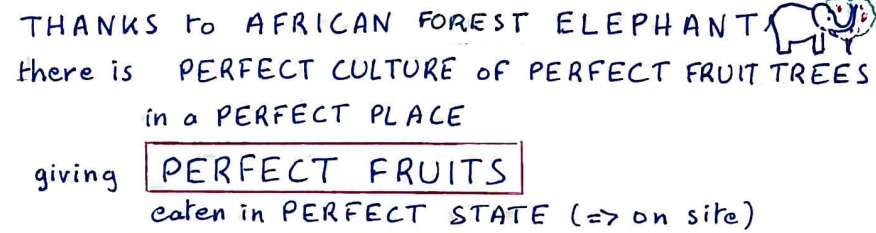 THANKS to AFRICAN FOREST ELEPHANT
there is PERFECT CULTURE of PERFECT FRUIT TREES
in a PERFECT PLACE
giving PERFECT FRUITS
eaten in PERFECT STATE (=> on site)